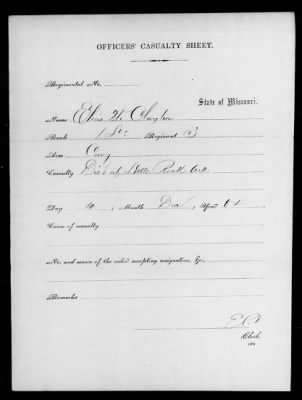 OFFICERS' CASUALTY SHEET.
Regimental No.
State of Missouri.
Name Chas W. Clayton
Rank 1 Lt. Regiment 3
Arm Cavy
Casualty Died at Little Rock Ark
Day 10, Month Dec, Year
Cause of casualty
No. and source of the order accepting resignation, &c.,
Remarks
Clerk.